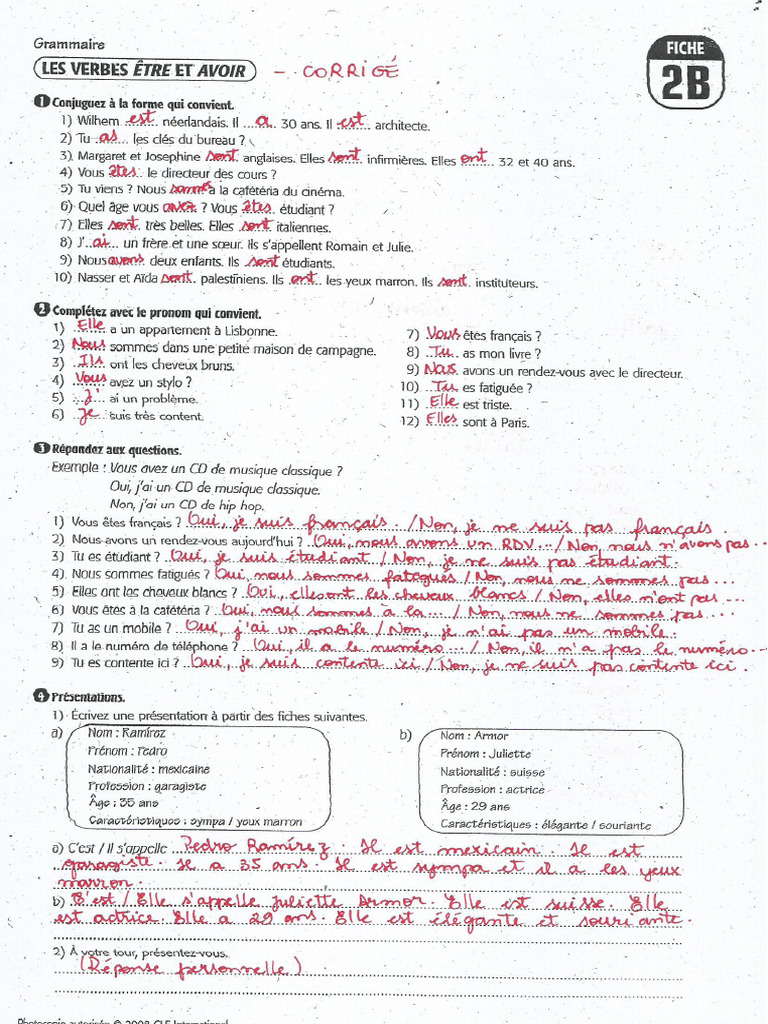 Grammaire
LES VERBES ÊTRE ET AVOIR - CORRIGÉ
FICHE
2B
1 Conjuguez à la forme qui convient.
1) Wilhem est néerlandais. Il a 30 ans. Il est architecte.
2) Tu as les clés du bureau ?
3) Margaret et Josephine sont anglaises. Elles sont infirmières. Elles ont 32 et 40 ans.
4) Vous êtes le directeur des cours ?
5) Tu viens ? Nous sommes à la cafétéria du cinéma.
6) Quel âge vous avez ? Vous êtes étudiant ?
7) Elles sont très belles. Elles sont italiennes.
8) J'ai un frère et une sœur. Ils s'appellent Romain et Julie.
9) Nous avons deux enfants. Ils sont étudiants.
10) Nasser et Aïda sont palestiniens. Ils ont les yeux marron. Ils sont instituteurs.
2 Complétez avec le pronom qui convient.
1) Elle a un appartement à Lisbonne.
2) Nous sommes dans une petite maison de campagne.
3) Ils ont les cheveux bruns.
4) Vous avez un stylo ?
5) J' ai un problème.
6) Je suis très content.
7) Vous êtes français ?
8) Tu as mon livre ?
9) Nous avons un rendez-vous avec le directeur.
10) Tu es fatiguée ?
11) Elle est triste.
12) Elles sont à Paris.
3 Répondez aux questions.
Exemple : Vous avez un CD de musique classique ?
Oui, j'ai un CD de musique classique.
Non, j'ai un CD de hip hop.
1) Vous êtes français ? Oui, je suis français. / Non, je ne suis pas français.
2) Nous avons un rendez-vous aujourd'hui ? Oui, nous avons un RDV... / Non, nous n'avons pas...
3) Tu es étudiant ? Oui, je suis étudiant / Non, je ne suis pas étudiant.
4) Nous sommes fatigués ? Oui, nous sommes fatigués / Non, nous ne sommes pas...
5) Elles ont les cheveux blancs ? Oui, elles ont les cheveux blancs / Non, elles n'ont pas...
6) Vous êtes à la cafétéria ? Oui, nous sommes à la... / Non, nous ne sommes pas...
7) Tu as un mobile ? Oui, j'ai un mobile / Non, je n'ai pas un mobile.
8) Il a le numéro de téléphone ? Oui, il a le numéro... / Non, il n'a pas le numéro...
9) Tu es contente ici ? Oui, je suis contente ici / Non, je ne suis pas contente ici.
4 Présentations.
1) Écrivez une présentation à partir des fiches suivantes.
a)
Nom : Ramírez
Prénom : Pedro
Nationalité : mexicaine
Profession : garagiste
Âge : 35 ans
Caractéristiques : sympa / yeux marron
b)
Nom : Armor
Prénom : Juliette
Nationalité : suisse
Profession : actrice
Âge : 29 ans
Caractéristiques : élégante / souriante
a) C'est / Il s'appelle Pedro Ramírez. Il est mexicain. Il est
garagiste. Il a 35 ans. Il est sympa et il a les yeux
marron.
b) C'est / Elle s'appelle Juliette Armor. Elle est suisse. Elle
est actrice. Elle a 29 ans. Elle est élégante et souriante.
2) À votre tour, présentez-vous.
(Réponse personnelle)
Photocopie autorisée © 2008 CLE International